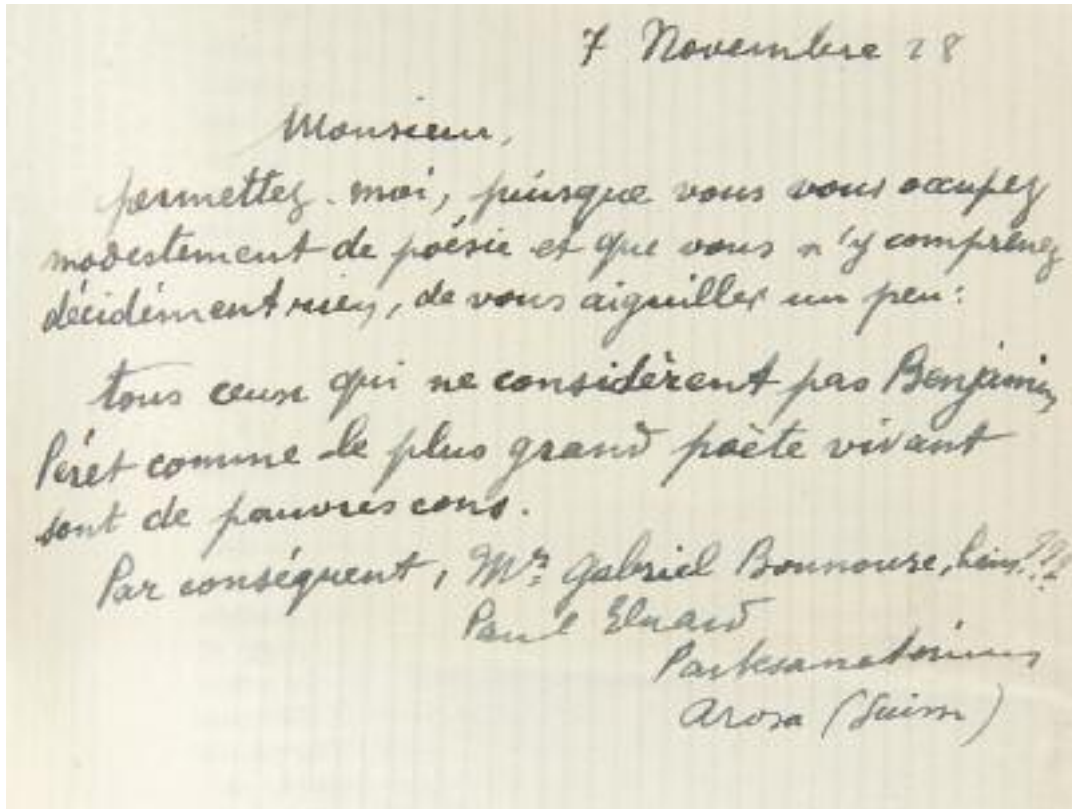 7 Novembre 28
Monsieur,
permettez-moi, puisque vous vous occupez
modestement de poésie et que vous n'y comprenez
décidément rien, de vous aiguiller un peu:
tous ceux qui ne considèrent pas Benjamin
Péret comme le plus grand poète vivant
sont de pauvres cons.
Par conséquent, Mr. Gabriel Bounoure, hein???
Paul Eluard
Parksanatorium
Arosa (Suisse)